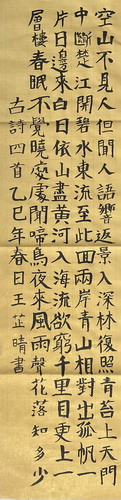 空山不見人但聞人語響返景入深林復照青苔上天門
中斷楚江開碧水東流至此回兩岸青山相對出孤帆一
片日邊來白日依山盡黃河入海流欲窮千里目更上一
層樓春眠不覺曉處處聞啼鳥夜來風雨聲花落知多少
古詩四首乙巳年春日王芷晴書